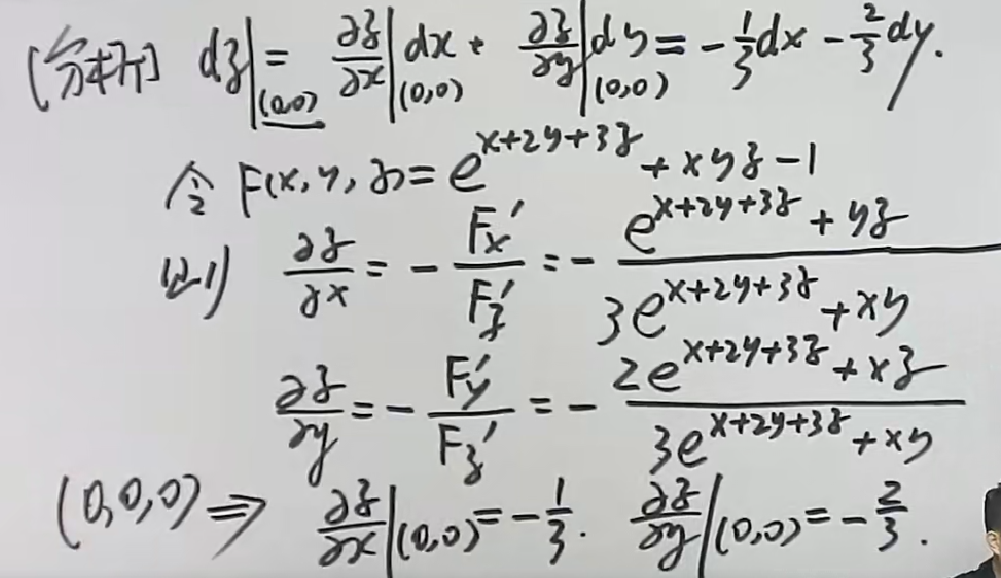 [分析] dz|(0,0) = ∂z/∂x|(0,0) dx + ∂z/∂y|(0,0) dy = -1/3 dx - 2/3 dy.
令 F(x,y,z) = e^(x+2y+3z) + xyz - 1
则 ∂z/∂x = - F'x/F'z = - (e^(x+2y+3z) + yz)/(3e^(x+2y+3z) + xy)
∂z/∂y = - F'y/F'z = - (2e^(x+2y+3z) + xz)/(3e^(x+2y+3z) + xy)
(0,0,0) ⇒ ∂z/∂x|(0,0) = -1/3. ∂z/∂y|(0,0) = -2/3.